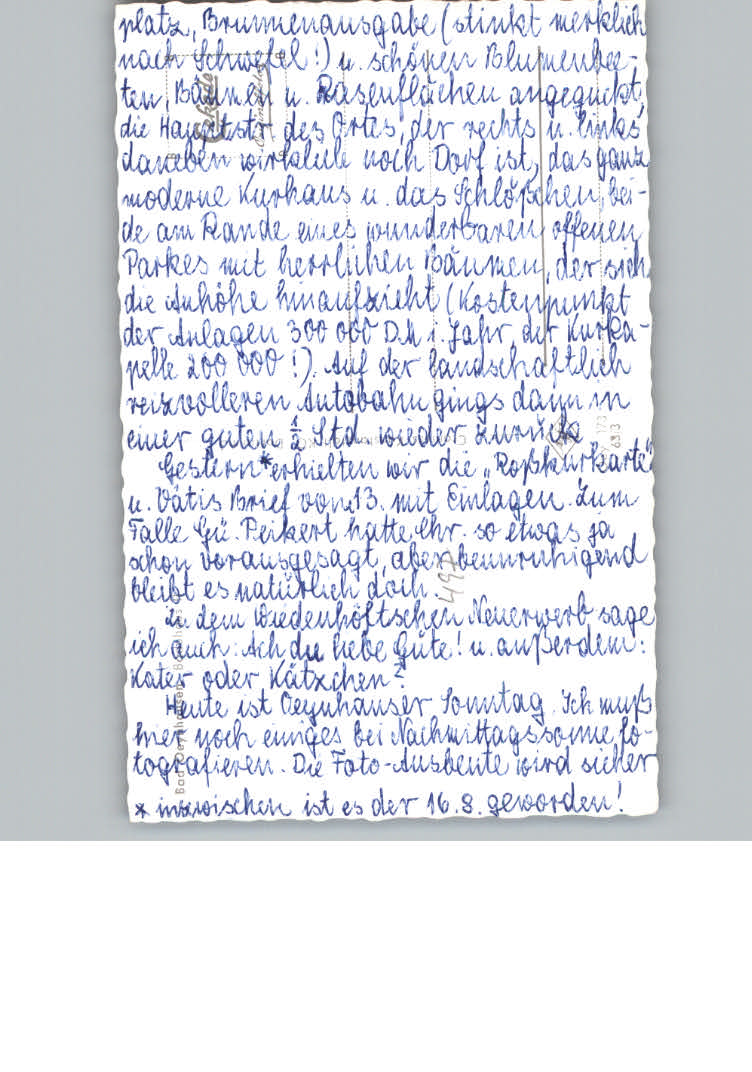 platz, Brunnenausgabe (stinkt merklich
nach Schwefel!) u. schönen Blumenbee-
ten, Bäumen u. Rasenflächen angeguckt,
die Hauptstr. des Ortes, der rechts u. links
daneben wirklich noch Dorf ist, das ganz
moderne Kurhaus u. das Schlößchen, bei-
de am Rande eines wunderbaren offenen
Parkes mit herrlichen Bäumen, der sich
die Anhöhe hinaufzieht (Kostenpunkt
der Anlagen 300 000 D.M i. Jahr, der Kurka-
pelle 200 000 !). Auf der landschaftlich
reizvolleren Autobahn gings dann in
einer guten ½ Std. wieder zurück
Gestern* erhielten wir die „Roßkurkarte"
u. Vatis Brief vom 13. mit Einlagen. Zum
Falle Gü. Peikert hatte Chr. so etwas ja
schon vorausgesagt, aber beunruhigend
bleibt es natürlich doch.
Zu dem Wiedenhöftschen Neuerwerb sage
ich auch: Ach du liebe Güte! u. außerdem:
Kater oder Kätzchen?
Heute ist Oeynhauser Sonntag. Ich muß
hier noch einiges bei Nachmittagssonne fo-
tografieren. Die Foto-Ausbeute wird sicher
* inzwischen ist es der 16. 8. geworden!
492
173
6313
Bad Oeynhausen